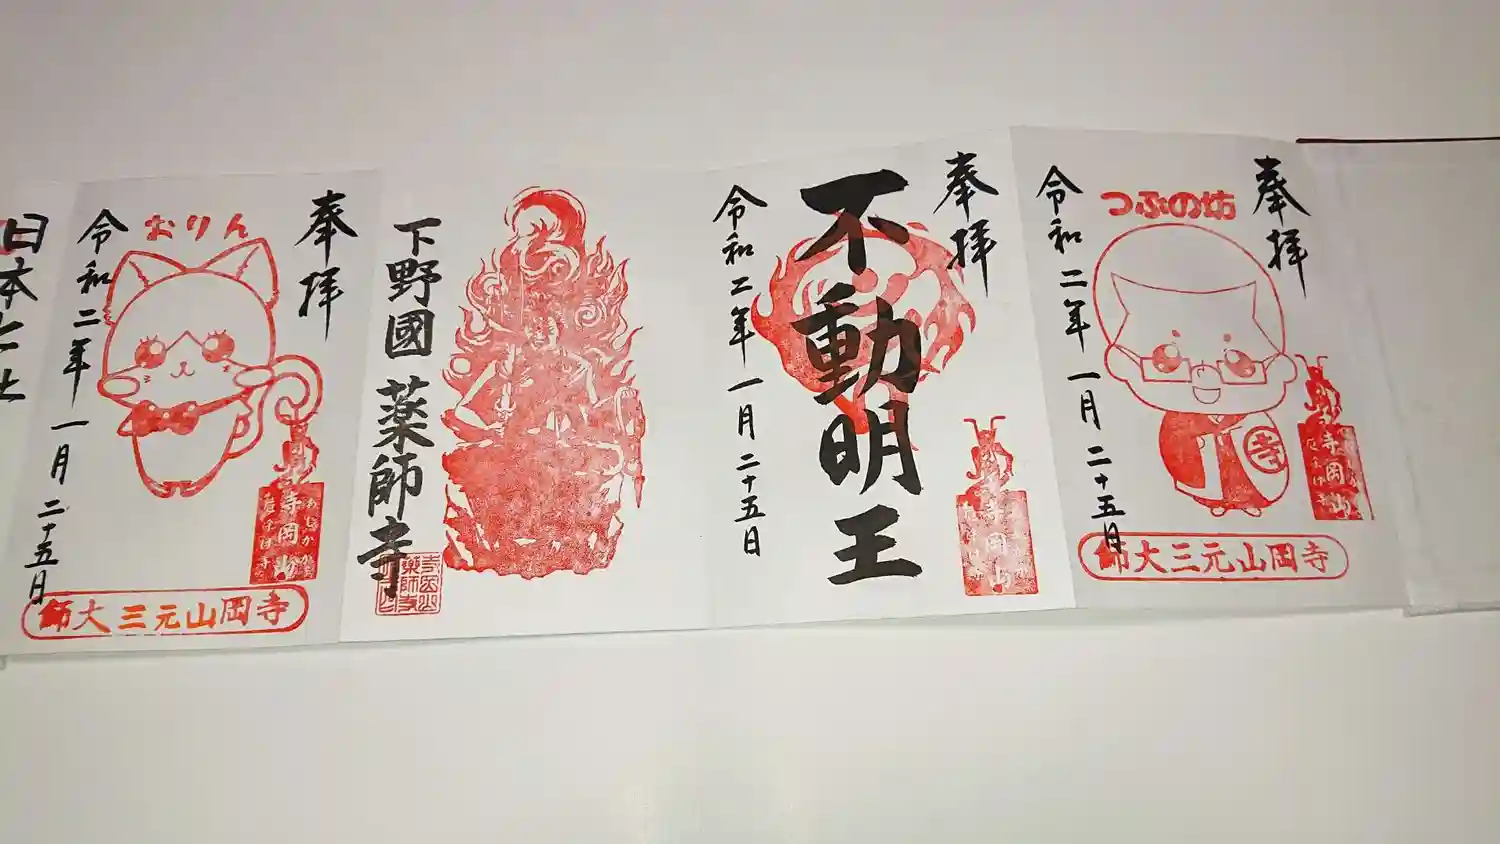 奉拝
つぶの坊
令和二年一月二十五日
寺岡山
寺岡山元三大師
奉拝
不動明王
令和二年一月二十五日
寺岡山
下野國 薬師寺
奉拝
おりん
令和二年一月二十五日
寺岡山
寺岡山元三大師
日本